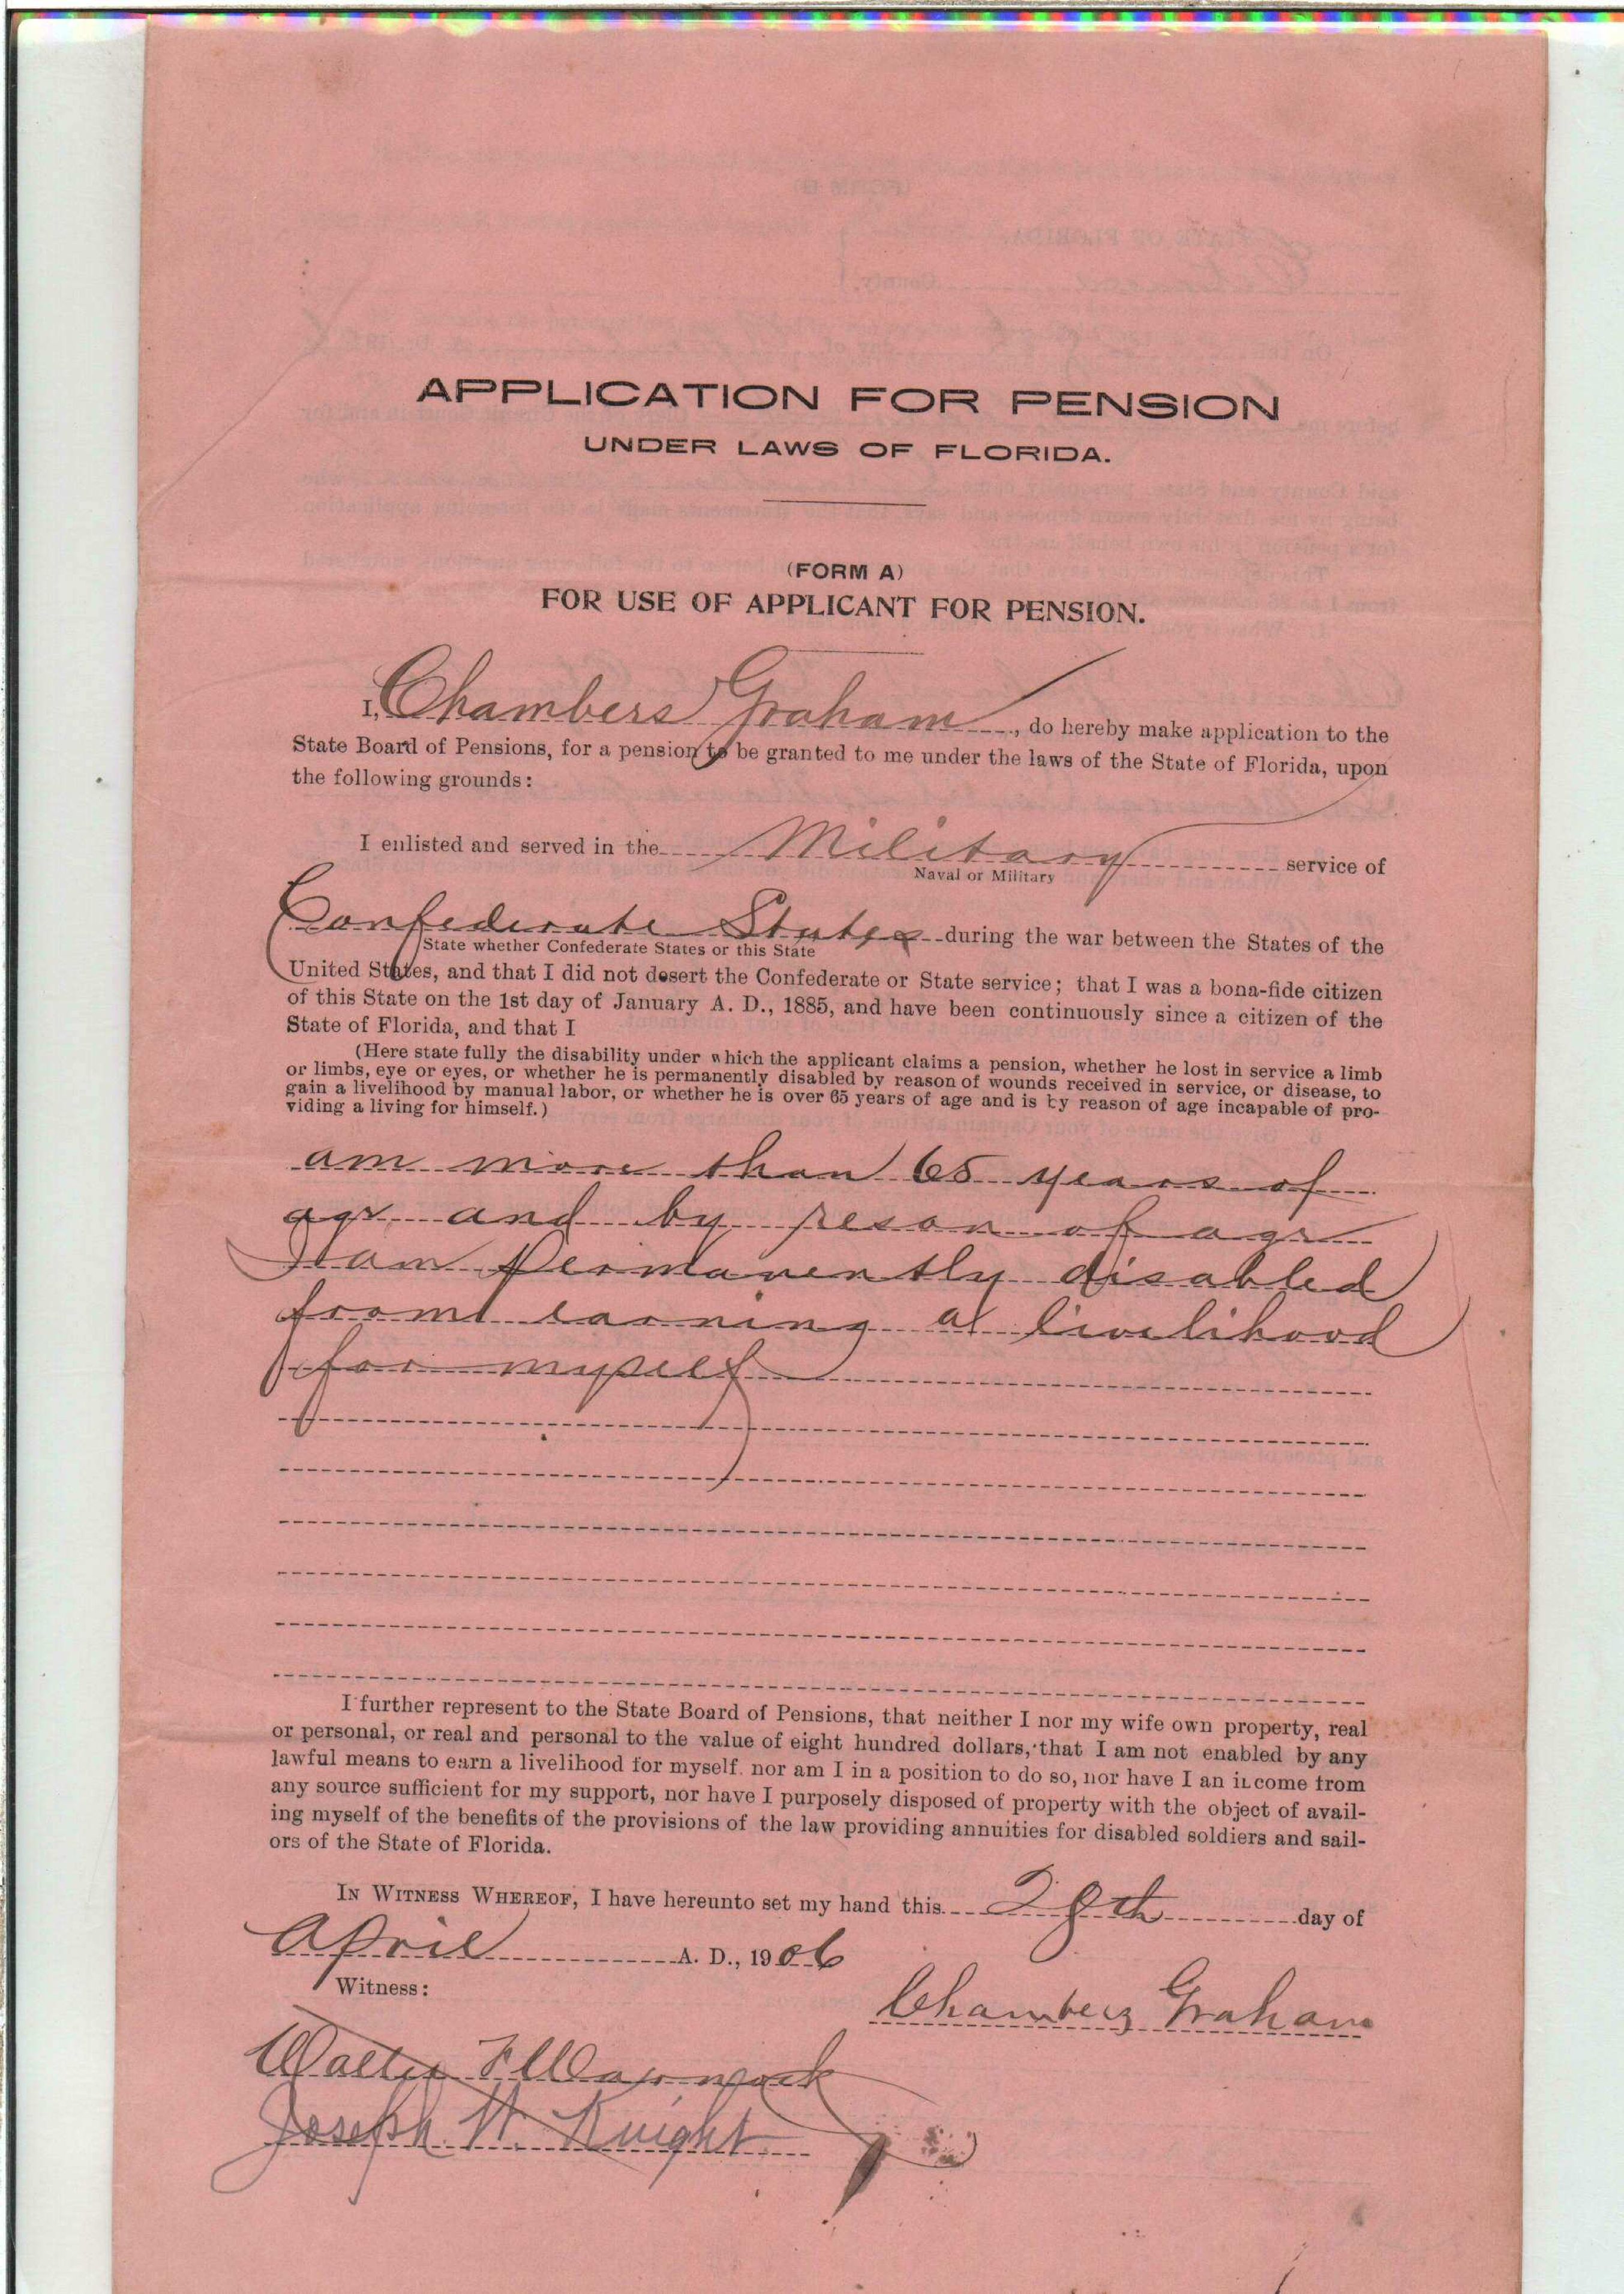 APPLICATION FOR PENSION
UNDER LAWS OF FLORIDA.
(FORM A)
FOR USE OF APPLICANT FOR PENSION.
I, Chambers Graham, do hereby make application to the
State Board of Pensions, for a pension to be granted to me under the laws of the State of Florida, upon
the following grounds:
I enlisted and served in the Military service of
Naval or Military
Confederate States during the war between the States of the
State whether Confederate States or this State
United States, and that I did not desert the Confederate or State service; that I was a bona-fide citizen
of this State on the 1st day of January A. D., 1885, and have been continuously since a citizen of the
State of Florida, and that I
(Here state fully the disability under which the applicant claims a pension, whether he lost in service a limb
or limbs, eye or eyes, or whether he is permanently disabled by reason of wounds received in service, or disease, to
gain a livelihood by manual labor, or whether he is over 65 years of age and is by reason of age incapable of pro-
viding a living for himself.)
am more than 65 years of
age and by reson of age
I am permanently disabled
from earning a livelihood
for myself
I further represent to the State Board of Pensions, that neither I nor my wife own property, real
or personal, or real and personal to the value of eight hundred dollars, that I am not enabled by any
lawful means to earn a livelihood for myself. nor am I in a position to do so, nor have I an income from
any source sufficient for my support, nor have I purposely disposed of property with the object of avail-
ing myself of the benefits of the provisions of the law providing annuities for disabled soldiers and sail-
ors of the State of Florida.
IN WITNESS WHEREOF, I have hereunto set my hand this 28th day of
April A. D., 1906
Witness:
Chambers Graham
Walter F Warnock
Joseph W. Knight